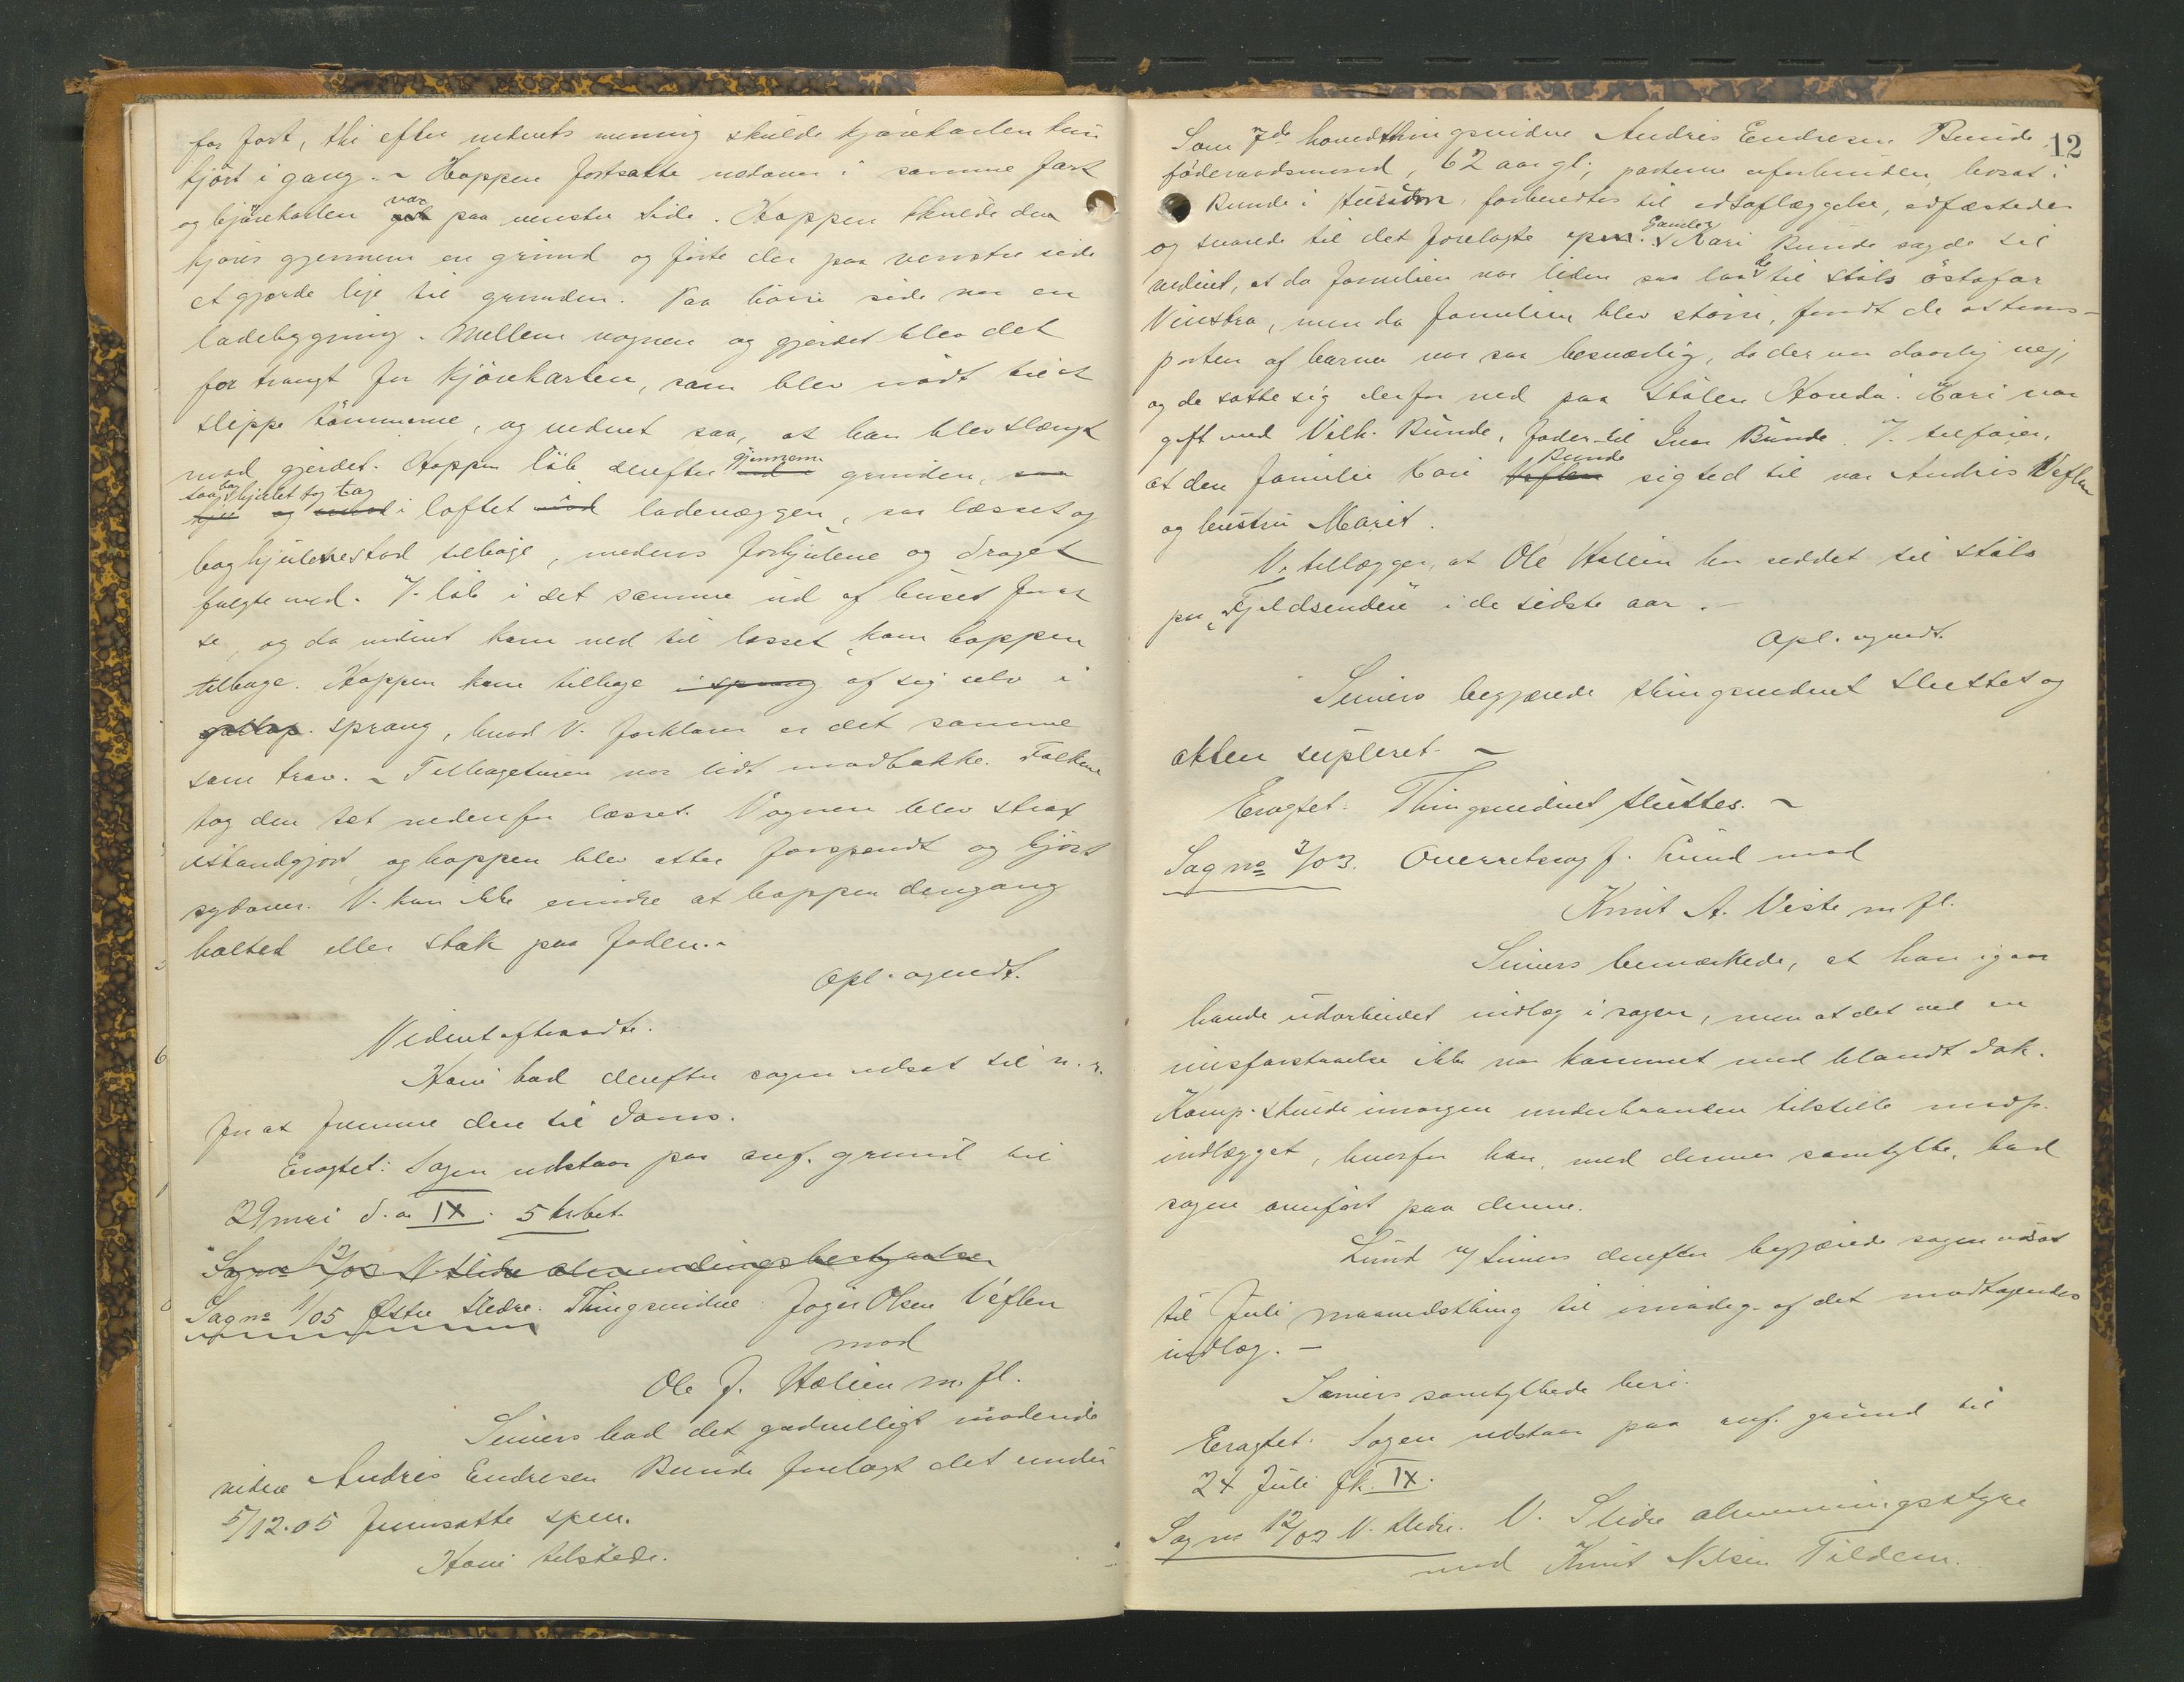 for fort, thi efter vidnets mening skulde kjørekarlen kun
kjørt i gang. - Hoppen fortsatte nedover i samme fart
og kjørekarlen var paa venstre side. Hoppen skulde der
kjøres gjennem en grind og førte der paa venstre side
et gjærde lige til grinden. Paa høire side var en
ladebygning. Mellem vognen og gjerdet blev det
for trangt for kjørekarlen, som blev nødt til at
slippe tømmerne, og vidnet saa, at han blev slængt
mod gjerdet. Hoppen løb derefter gjennem grinden,
saa baghjulet tog tag i loftet ladevæggen, saa læsset og
baghjulene stod tilbage, medens forhjulene og draget
fulgte med. V. løb i det samme ud af huset for at
se, og da vidnet kom ned til læsset, kom hoppen
tilbage. Hoppen kom tilbage i sprang af sig selv i
gallop. sprang, hvad V. forklarer er det samme
som trav. - Tilbageturen var lidt modbakke. Folkene
tog den tæt nedenfor læsset. Vognen blev strax
istandgjort, og hoppen blev atter forspændt og kjørt
sydover. V. kan ikke erindre at hoppen dengang
halted eller stak paa foden.-
Opl. og vedt.
Vidnet aftraadte.
Hove bad derefter sagen udsat til n. r.
for at fremme den til doms.
Eragtet: Sagen udstaar paa anf. grund til
29 mai d.a. IX. 5 k bet.
Sag no 12/03 V. Slidre almendingsbestyrelse
Sag no 11/05 Østre Slidre. Thingsvidne: Joger Olsen Veflen
mod
Ole J. Hælien m. fl.
Siewers bad det godvilligt mødende
vidne Andris Endresen Runde forelagt det under
5/12.05 fremsatte spm.
Hove tilstede.
12
Som 7de hovedthingsvidne Andris Endresen Runde
føderaadsmand, 62 aar gl., parterne uforbunden, bosat i
Runde i Hurum, forberedtes til edsaflæggelse, edfæstedes
og svarede til det forelagte spm. Gamle Kari Runde sagde til
vidnet, at da familien var liden saa laa de til støls østafor
Vinstra, men da familien blev større, fandt de at trans-
porten af barna var saa besværlig, da der var daarlig vej,
og de satte sig derfor ned paa stølen Honda. Kari var
gift med Vilh. Runde, fader til Ivar Runde. V. tilføier,
at den familie Kari Runde sigted til var Andris Veflen
og hustru Marit.
V. tillægger, at Ole Hallien har siddet til støls
paa "Fjeldsenden" i de sidste aar. -
Opl. og vedt.
Siewers begjærede thingsvidnet sluttet og
akten supleret. -
Eragtet: Thingsvidnet sluttes. -
Sag no 3/03. Overretssag f. Lund mod
Knut A. Viste m fl.
Siewers bemærkede, at han igaar
havde udarbeidet indlæg i sagen, men at det ved en
misforstaaelse ikke var kommet med blandt dok.
Komp. skulde imorgen underhaanden tilstille modp.
indlægget, hvorfor han, med dennes samtykke, bad
sagen anført paa denne.
Lund v/ Siewers derefter begjærede sagen udsat
til Juli maanedsthing til imødeg. af det modtagendes
indlæg. -
Siewers samtykkede heri.
Eragtet: Sagen udstaar paa anf. grund til
24 Juli fk. IX.
Sag no 12/03 V. Slidre. V. Slidre almenningsstyre
mod Knut Nilsen Tildem.